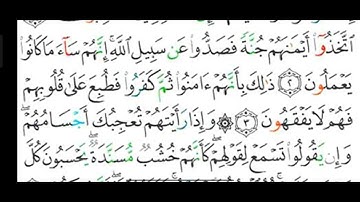 ٱتَّخَذُوٓا۟ أَيْمَٰنَهُمْ جُنَّةً فَصَدُّوا۟ عَن سَبِيلِ ٱللَّهِ ۚ إِنَّهُمْ سَآءَ مَا كَانُوا۟
يَعْمَلُونَ ۝٢ ذَٰلِكَ بِأَنَّهُمْ ءَامَنُوا۟ ثُمَّ كَفَرُوا۟ فَطُبِعَ عَلَىٰ قُلُوبِهِمْ
فَهُمْ لَا يَفْقَهُونَ ۝٣ ۞ وَإِذَا رَأَيْتَهُمْ تُعْجِبُكَ أَجْسَامُهُمْ ۖ
وَإِن يَقُولُوا۟ تَسْمَعْ لِقَوْلِهِمْ ۖ كَأَنَّهُمْ خُشُبٌ مُّسَنَّدَةٌ ۖ يَحْسَبُونَ كُلَّ